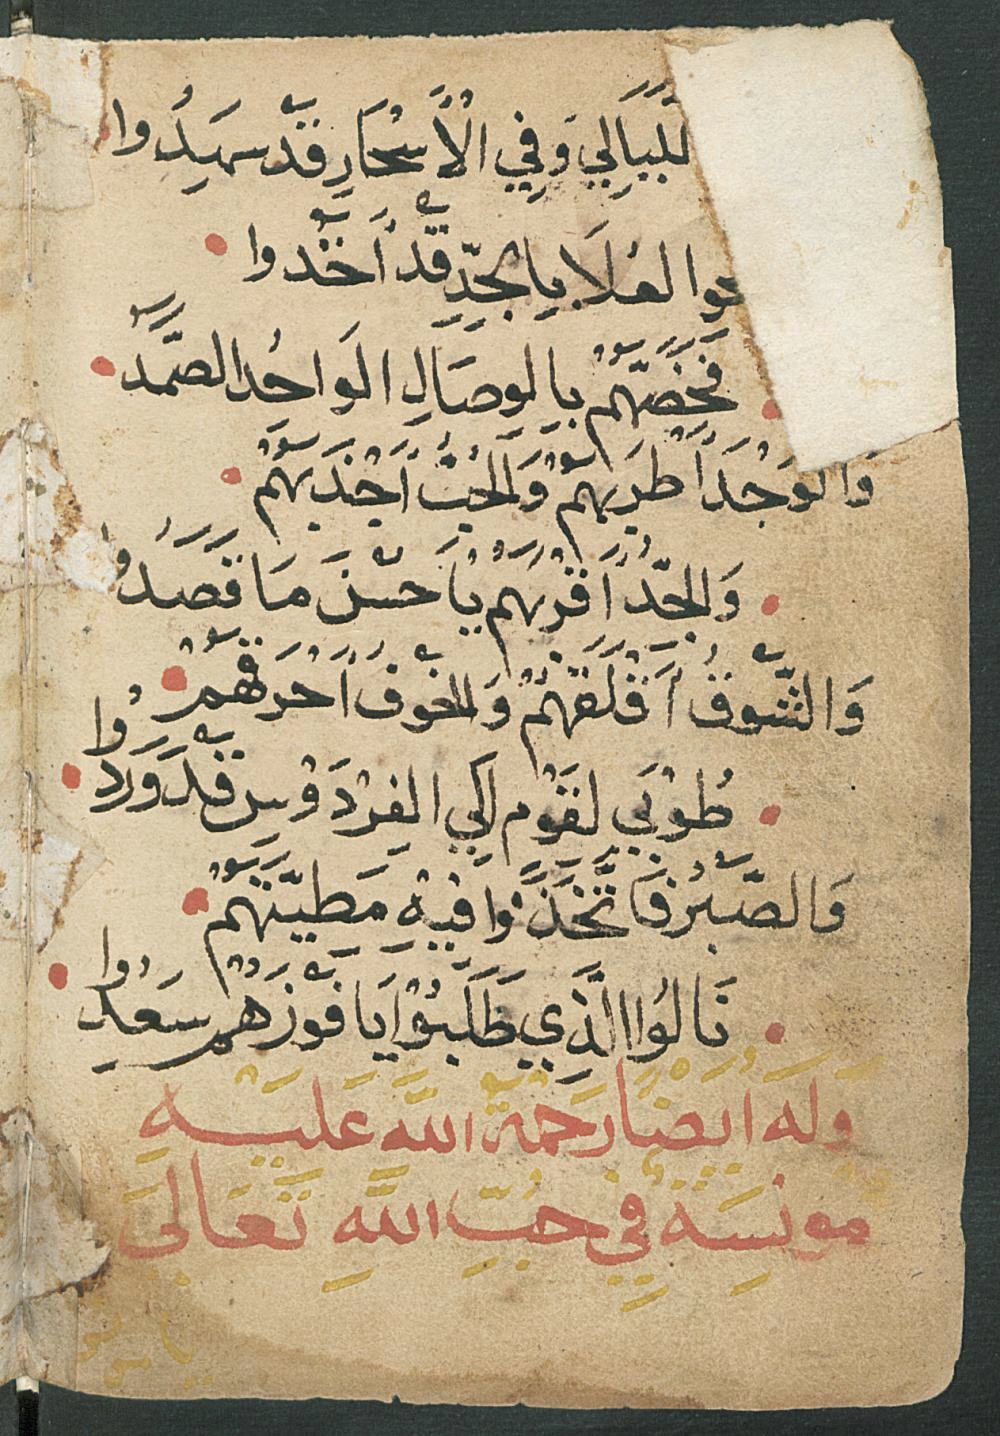 اللَّيَالِي وَفِي الْأَسْحَارِ قَدْ سَهِدُوا
العُلَا بِالجِدِّ قَدْ أَخَذُوا
فَخَصَّهُمْ بِالوِصَالِ الوَاحِدُ الصَّمَدُ
وَالوَجْدُ أَطْرَبَهُمْ وَالحُبُّ أَجْذَبَهُمْ
وَالجِدُّ أَقْرَبَهُمْ يَا حُسْنَ مَا قَصَدُوا
وَالشَّوقُ أَقْلَقَهُمْ وَالخَوفُ أَحْرَقَهُمْ
طُوْبَى لِقَوْمٍ إِلَى الفِرْدَوْسِ قَدْ وَرَدُوا
وَالصَّبْرُ فَاتَّخَذُوا فِيهِ مَطِيَّتَهُمْ
نَالُوا الَّذِي طَلَبُوْا يَا فَوْزَهُمْ سَعِدُوا
وَلَهُ أَيْضًا رَحْمَةُ اللَّهِ عَلَيْهِ
مونِسَةٌ فِي حُبِّ اللَّهِ تَعَالَى